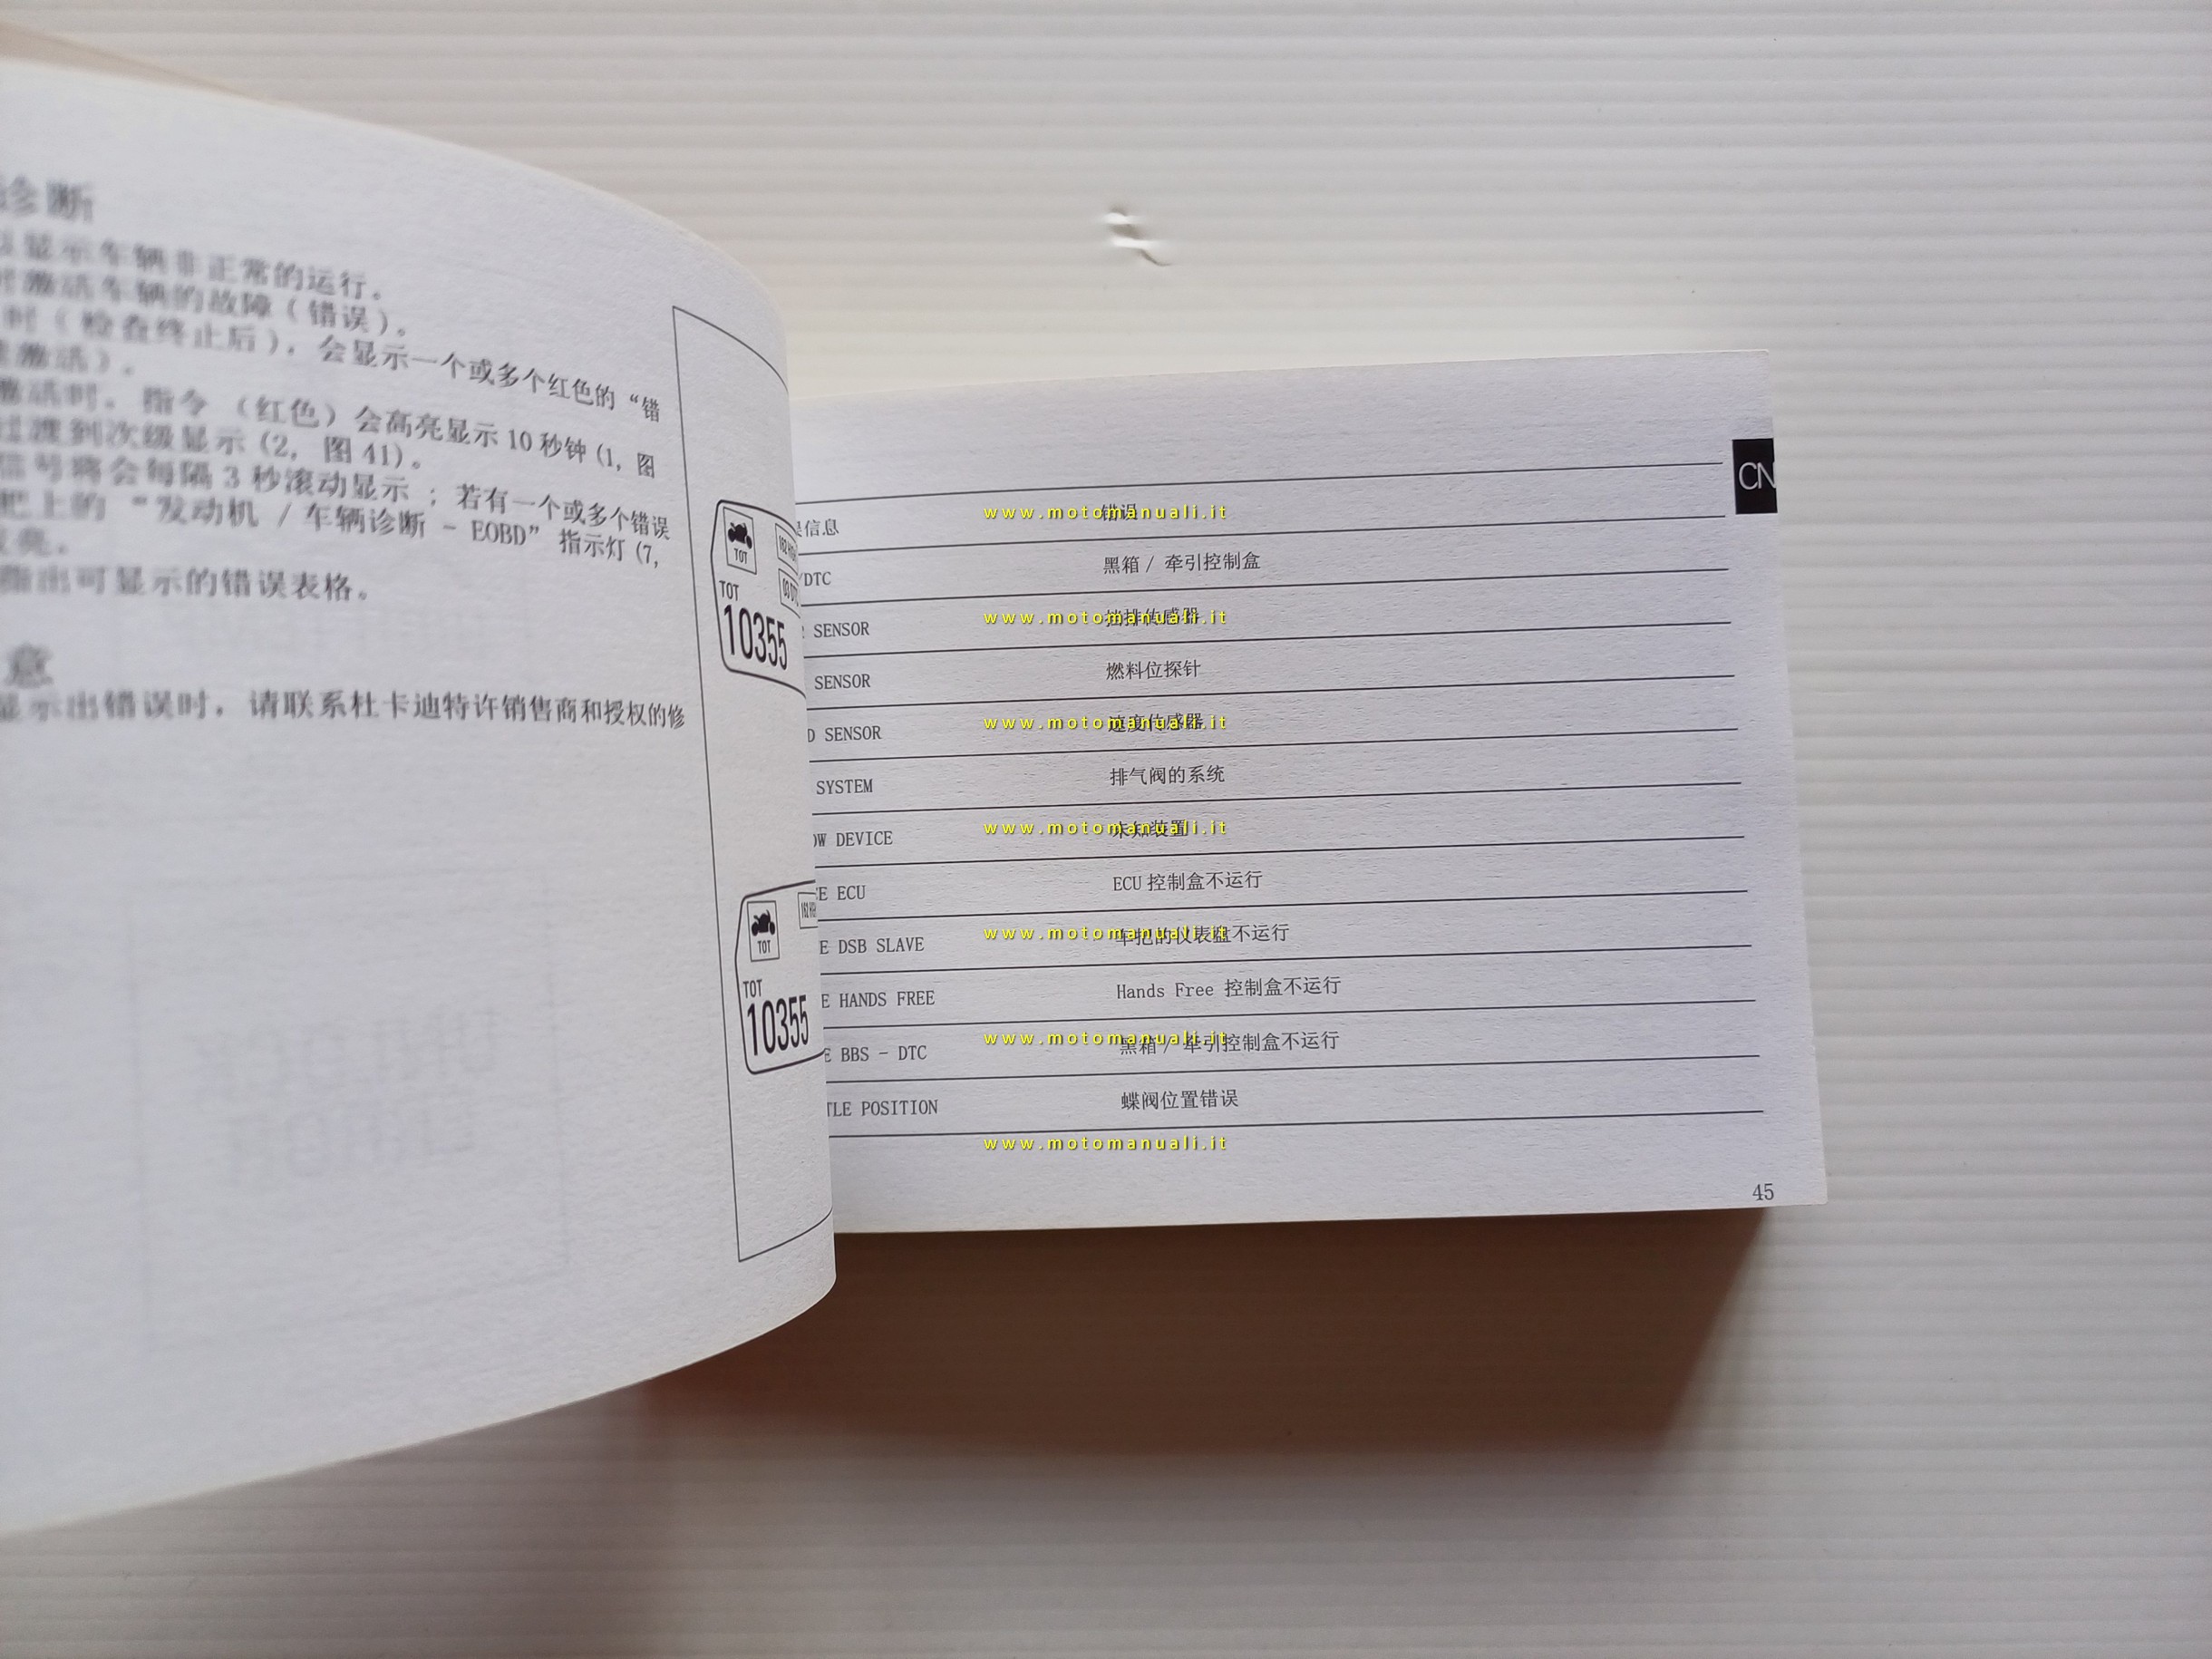 诊断
显示车辆非正常的运行。
激活车辆的故障（错误）。
时（检查终止后），会显示一个或多个红色的“错
激活）。
激活时，指令 （红色）会高亮显示 10 秒钟 (1, 图
过渡到次级显示 (2, 图 41)。
信号将会每隔 3 秒滚动显示 ；若有一个或多个错误
把上的 “发动机 / 车辆诊断 - EOBD” 指示灯 (7,
亮。
指出可显示的错误表格。
意
显示出错误时，请联系杜卡迪特许销售商和授权的修
TOT
TOT
10355
TOT
TOT
10355
CN
信息 错误
/DTC 黑箱 / 牵引控制盒
SENSOR 挡排传感器
SENSOR 燃料位探针
D SENSOR 速度传感器
SYSTEM 排气阀的系统
OW DEVICE 未知装置
E ECU ECU 控制盒不运行
E DSB SLAVE 车把的仪表盘不运行
E HANDS FREE Hands Free 控制盒不运行
E BBS - DTC 黑箱 / 牵引控制盒不运行
TLE POSITION 蝶阀位置错误
45
www.motomanuali.it
www.motomanuali.it
www.motomanuali.it
www.motomanuali.it
www.motomanuali.it
www.motomanuali.it
www.motomanuali.it